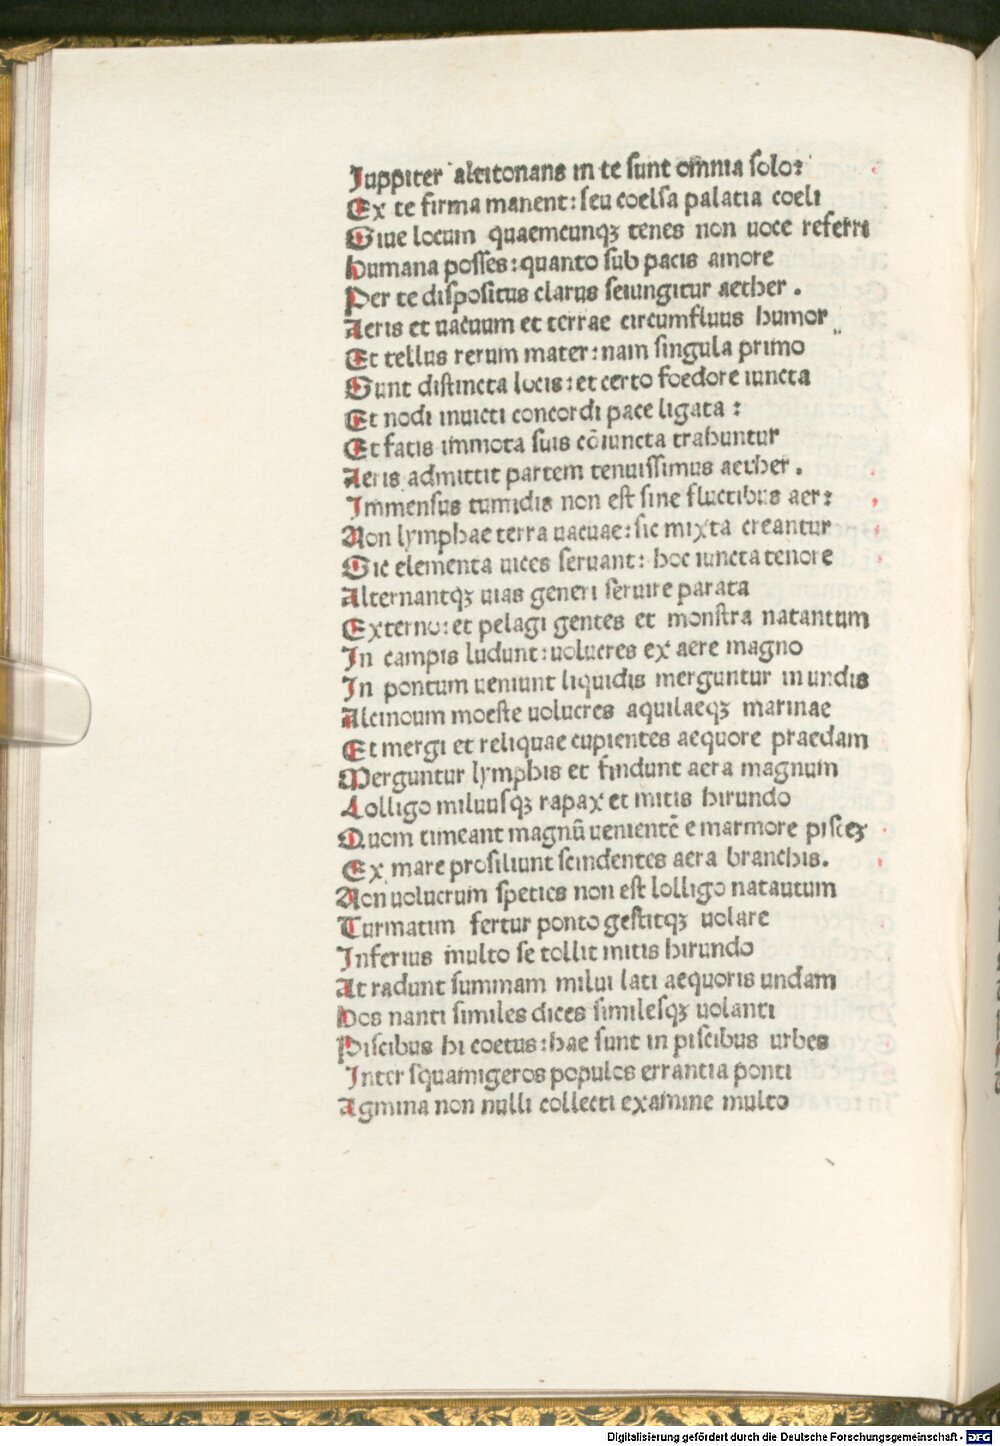 Juppiter altitonans in te sunt omnia solo:
Ex te firma manent: seu coelsa palatia coeli
Siue locum quaemcunqꝫ tenes non uoce referri
Humana posses: quanto sub pacis amore
Per te dispositus clarus seiungitur aether .
Aeris et uacuum et terrae circumfluus humor
Et tellus rerum mater: nam singula primo
Sunt distincta locis: et certo foedore iuncta
Et nodi inuicti concordi pace ligata :
Et fatis immota suis cōiuncta trahuntur
Aeris admittit partem tenuissimus aether .
Immensus tumidis non est sine fluctibus aer:
Non lymphae terra uacuae: sic mixta creantur
Sic elementa uices seruant: hoc iuncta tenore
Alternantqꝫ uias generi seruire parata
Externo: et pelagi gentes et monstra natantum
In campis ludunt: uolucres ex aere magno
In pontum ueniunt liquidis merguntur in undis
Alcinoum moeste uolucres aquilaeqꝫ marinae
Et mergi et reliquae cupientes aequore praedam
Merguntur lymphis et findunt aera magnum
Lolligo miluusqꝫ rapax et mitis hirundo
Quom timeant magnū uenientē e marmore pisceꝫ
Ex mare prosiliunt scindentes aera branchis.
Non uolucrum species non est lolligo natautum
Turmatim fertur ponto gestitqꝫ uolare
Inferius multo se tollit mitis hirundo
At radunt summam milui lati aequoris undam
Hos nanti similes dices similesqꝫ uolanti
Piscibus hi coetus: hae sunt in piscibus urbes
Inter squamigeros populos errantia ponti
Agmina non nulli collecti examine multo
Digitalisierung gefördert durch die Deutsche Forschungsgemeinschaft - DFG